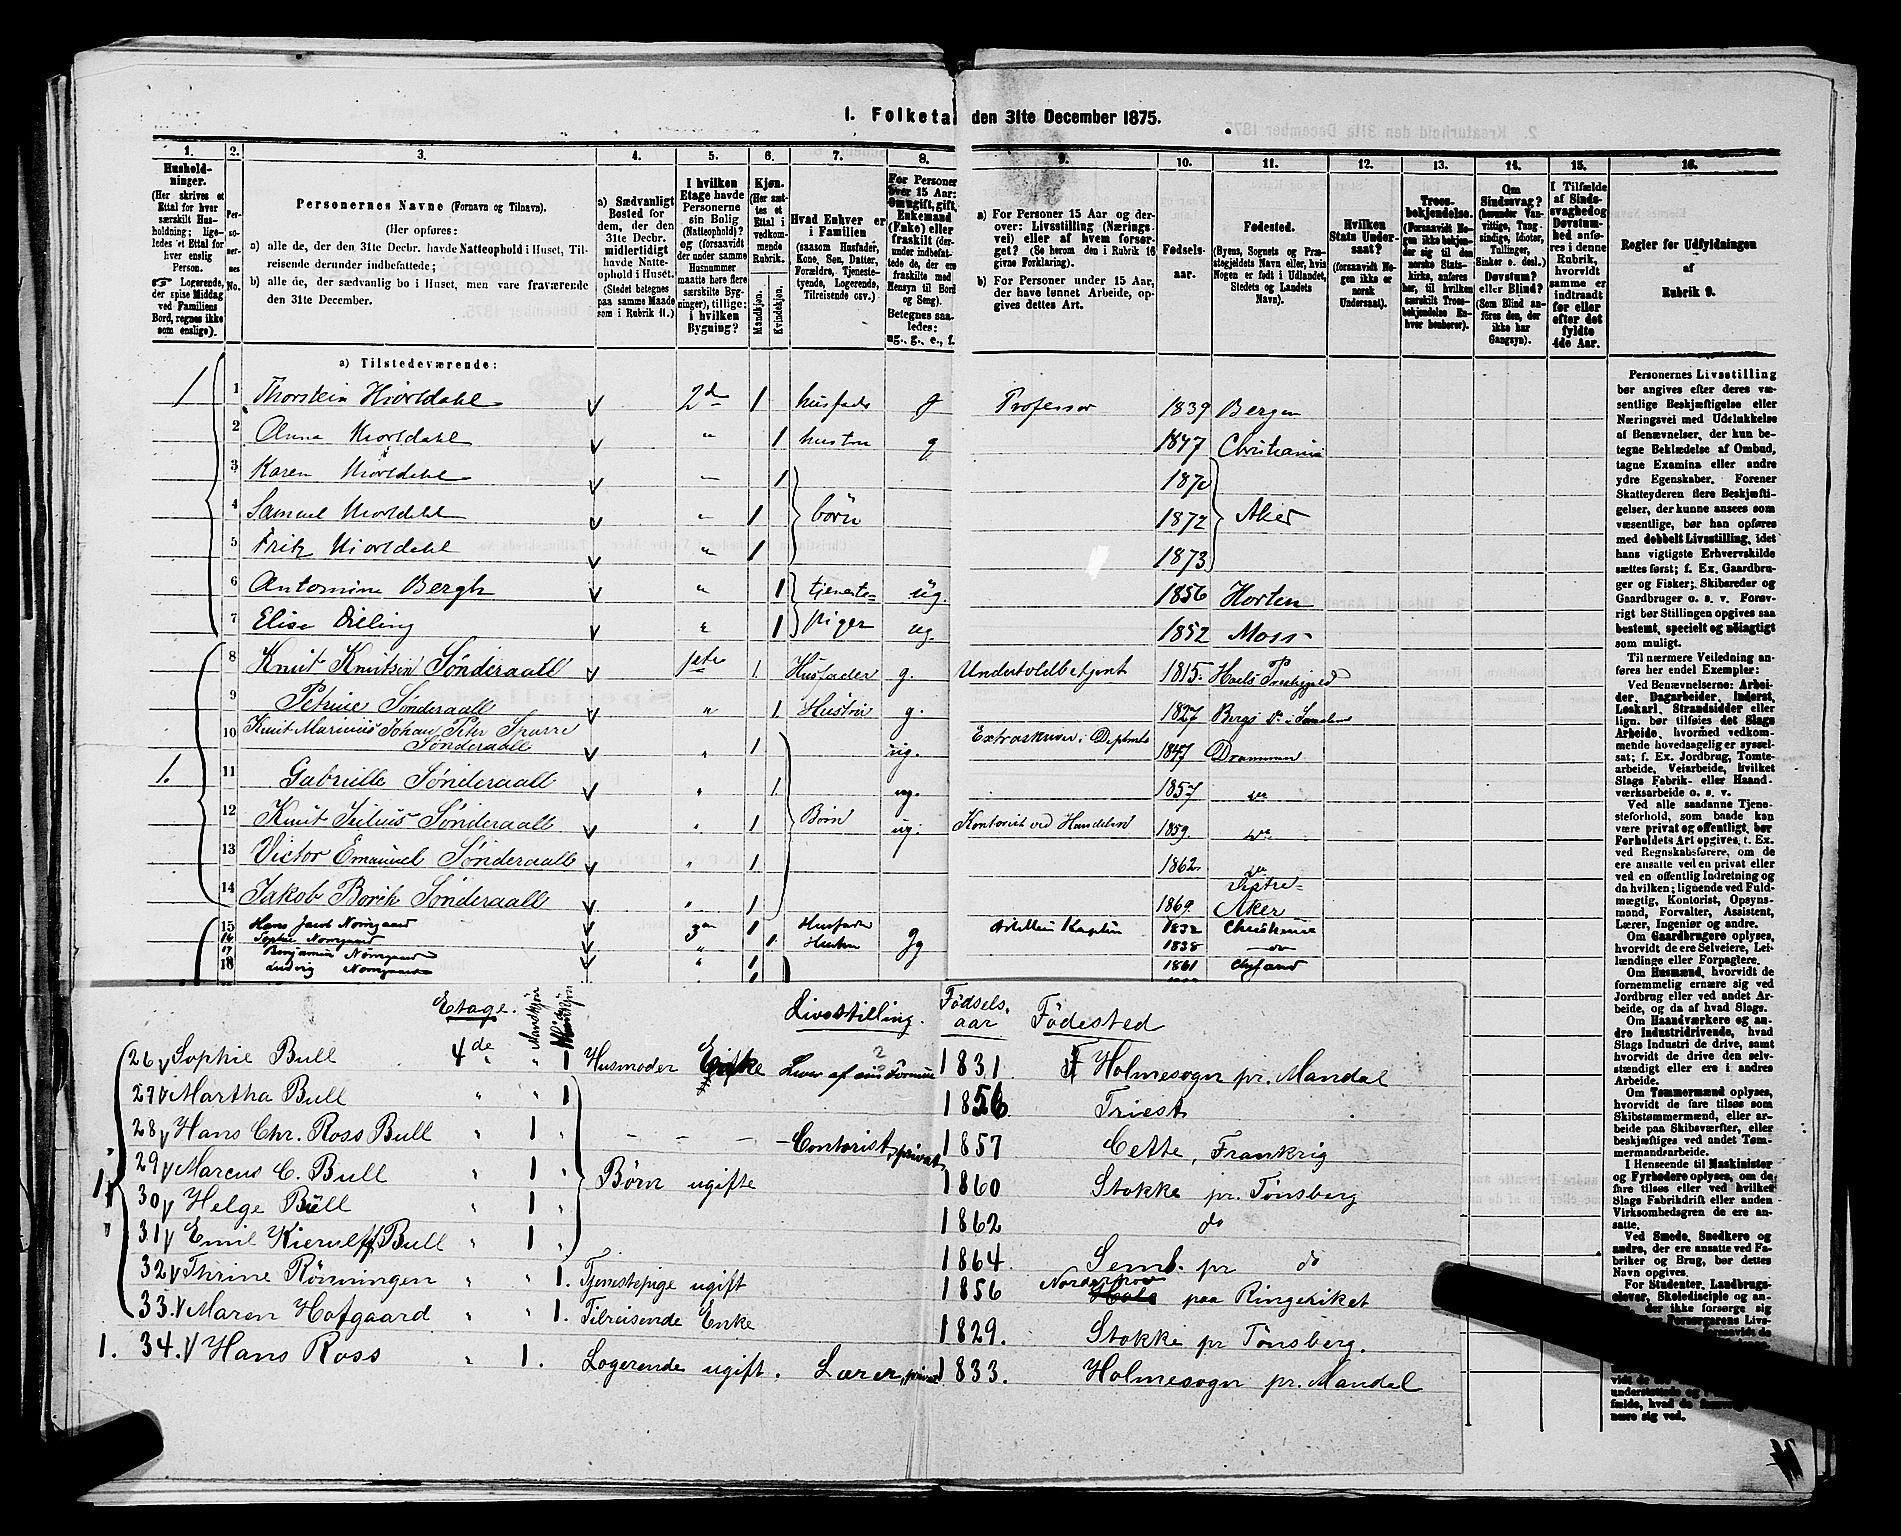 1. Folketal den 31te December 1875.
1. 2. 3. 4. 5. 6. 7. 8. 9. 10. 11. 12. 13. 14. 15. 16.
Hushold-
ninger.
(Her skrives et
Ettal for hver
særskilt Hus-
holdning; lige-
ledes et Ettal for
hver enslig
Person.
Logerende,
der spise Middag
ved Familiens
Bord, regnes ikke
som enslige).
Per-
so-
ner-
nes
No.
Personernes Navne (Fornavn og Tilnavn).
(Her opføres:
a) alle de, der den 31te Decbr. havde Natteophold i Huset, Til-
reisende derunder indbefattede;
b) alle de, der sædvanlig bo i Huset, men vare fraværende
den 31te December.
a) Sædvanligt
Bosted for
dem, der den
31te Decbr.
midlertidigt
havde Natte-
ophold i Huset.
(Stedet betegnes
paa samme Maade
som i Rubrik 11.)
I hvilken
Etage havde
Personerne
sin Bolig
(Natteophold)?
og (forsaavidt
der under samme
Husnummer
maatte høre flere
særskilte Byg-
ninger), tillige:
i hvilken
Bygning?
Kjøn.
(Her sæt-
tes et
Ettal i
vedkom-
mende
Rubrik.
Mandkjøn.
Kvindekjøn.
Hvad Enhver er
i Familien
(saasom Husfader,
Kone, Søn, Datter,
Forældre, Tjeneste-
tyende, Logerende,
Tilreisende osv.)
For Personer
over 15 Aar:
Om ugift, gift,
Enkemand
(Enke) eller
fraskilt (der-
under indbefat-
tede de, der ere
fraskilte med
Hensyn til Bord
og Seng).
Betegnes saa-
ledes:
ug., g., e., f.
a) For Personer 15 Aar og der-
over: Livsstilling (Nærings-
vei) eller af hvem forsør-
get? (Se herom den i Rubrik 16
givne Forklaring).
b) For Personer under 15 Aar,
der have lønnet Arbeide, op-
gives dettes Art.
Fødsels-
aar.
Fødested.
(Byens, Sognets og Præ-
stegjeldets Navn eller, hvis
Nogen er født i Udlandet,
Stedets og Landets
Navn).
Hvilken
Stats Under-
saat?
(forsaavidt No-
gen ikke er
norsk
Undersaat).
Troes-
bekjendelse.
(Forsaavidt No-
gen ikke beken-
der sig til den
norske Stats-
kirke, anføres
her, til hvilken
særskilt Troes-
bekjendelse En-
hver henhører).
Om
Sindssvag?
(herunder Van-
vittige, Tung-
sindige, Idioter,
Tullinger,
Sinker o. desl.)
Døvstum?
eller Blind?
(Som Blind an-
føres den, der
ikke har
Gangsyn).
I Tilfælde
af Sinds-
svaghed og
Døvstum-
hed anfø-
res i denne
Rubrik,
hvorvidt
samme er
indtraadt
før eller
efter det
fyldte
4de Aar.
Regler for Udfyldningen
af
Rubrik 9.
a) Tilstedeværende:
1 1 Thorstein Hiortdahl 2d 1 husfader g Professor 1839 Bergen
2 Anna Hiortdahl " 1 hustru g 1847 Christiania
3 Karen Hiortdahl 1 1870
4 Samuel Hiortdahl " 1 børn 1872 Aker
5 Fritz Hiortdahl " 1 1873
6 Antomine Bergh " 1 tjeneste- ug. 1856 Horten
7 Elise Dilling " 1 piger ug. 1852 Moss
8 Knut Knutsen Sønderaall 1ste 1. Husfader g. Underfoldbetjent 1815. Hoels Prestegjeld
9 Petrine Sønderaall " 1. Hustru g. 1827 Bergs
10 Knut Marinius Johan Peter Sparre
Sønderaall " 1 ug. Extraskriver i Deptmte 1847 Drammen
1. 11 Gabrielle Sønderaall " 1. ug. 1857 do
12 Knut Julius Sønderaall " 1 Børn ug. Kontorist ved Handelen 1859. do
13 Victor Emanuel Sønderaall " 1 1862 do
14 Jakob Borik Sønderaall " 1 1869. Vestre-
Aker
15 Hans Jacob Nørregaard 3die 1 Husfader g Artilleri Kaptein 1832 Christiania
16 Sophie Nørregaard " 1. Hustru g 1838 do
17 Benjamin Nørregaard " 1 1861 Chrsand
18 Ludvig Nørregaard
Etage. Mandkjøn Kvindekjøn Livsstilling. Fødsels.
aar Fødested
26 Sophie Bull 4de " 1 Husmoder Enke Lever af sin Formue 1831 Holmesogn pr. Mandal
27 Martha Bull " " 1 1856 Triest
28 Hans Chr. Ross Bull " 1 " Contorist, privat 1857 Cette, Frankrig
29 Marcus C. Bull " 1 " Børn ugifte 1860 Stokke pr. Tønsberg
1. 30 Helge Bull 1 " 1862 do
31 Emil Kierulff Bull " 1 " 1864. Semb. pr do
32 Thrine Rönningen " " 1. Tjenestepige ugift 1856 Norderhov paa Ringeriket
33. Maren Hofgaard " " 1. Tilreisende Enke 1829. Stokke pr Tønsberg.
1. 34. Hans Ross " 1. Logerende ugift. Lærer, privat 1833. Holmesogn pr. Mandal
Personernes Livsstilling
bør angives efter deres væ-
sentlige Beskjæftigelse eller
Næringsvei med Udelukkelse
af Benævnelser, der kun be-
tegne Beklædelse af Ombud,
tagne Examina eller andre
ydre Egenskaber. Forener
Skatteyderen flere Beskjæfti-
gelser, der kunne ansees som
væsentlige, bør han opføres
med dobbelt Livsstilling, idet
hans vigtigste Erhvervskilde
sættes først; f. Ex. Gaardbru-
ger og Fisker; Skibsreder og
Gaardbruger o. s. v. Forøv-
rigt bør Stillingen opgives saa
bestemt, specielt og nøiagtigt
som muligt.
Til nærmere Veiledning an-
føres her endel Exempler:
Ved Benævnelserne: Arbei-
der, Dagarbeider, Inderst,
Løskarl, Strandsidder eller
lign. bør tilføies det Slags
Arbeide, hvormed vedkom-
mende hovedsagelig er syssel-
sat; f. Ex. Jordbrug, Tomte-
arbeide, Veiarbeide, hvilket
Slags Fabrik- eller Haand-
værksarbeide o. s. v.
Ved alle saadanne Tjene-
steforhold, som baade kan
være privat og offentligt, bør
Forholdets Art opgives, t. Ex.
ved Regnskabsførere, om de
ere ansatte ved en privat eller
ved en offentlig Indretning og
da hvilken; lignende ved Fuld-
mægtig, Kontorist, Opsyns-
mand, Forvalter, Assistent,
Lærer, Ingeniør og andre.
Om Gaardbrugere oplyses,
hvorvidt de ere Selveiere, Lei-
lændinge eller Forpagtere.
Om Husmænd, hvorvidt de
fornemmelig ernære sig ved
Jordbrug eller ved andet Ar-
beide, og da af hvad Slags.
Om Haandværkere og an-
dre Industridrivende, hvad
Slags Industri de drive, samt
hvorvidt de drive den selv-
stændigt eller ere i andres
Arbeide.
Om Tømmermænd oplyses,
hvorvidt de fare tilsøs som
Skibstømmermænd, eller ar-
beide paa Skibsværfter, eller
beskjæftiges ved andet Tøm-
mermandsarbeide.
I Henseende til Maskinister
og Fyrbødere oplyses, om de
fare tilsøs eller ved hvilket
Slags Fabrikdrift eller anden
Virksomhedsgren de ere an-
satte.
Ved Smede, Snedkere og
andre, der ere ansatte ved Fa-
briker og Brug, bør dettes
Navn opgives.
For Studenter, Landbrugs-
elever, Skoledisciple og an-
dre, der ikke forsørge sig